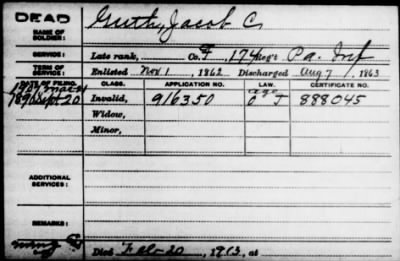 DEAD
NAME OF SOLDIER: Guth, Jacob C.
SERVICE: Late rank, Co. F, 174 Reg't Pa. Inf
TERM OF SERVICE: Enlisted Nov 1, 1862 Discharged Aug 7, 1863
DATE OF FILING. CLASS. APPLICATION NO. LAW. CERTIFICATE NO.
1890 Sept 20 Invalid, 916350 888045
Widow,
Minor,
ADDITIONAL SERVICES:
REMARKS:
Died Feb-20, 1913, at